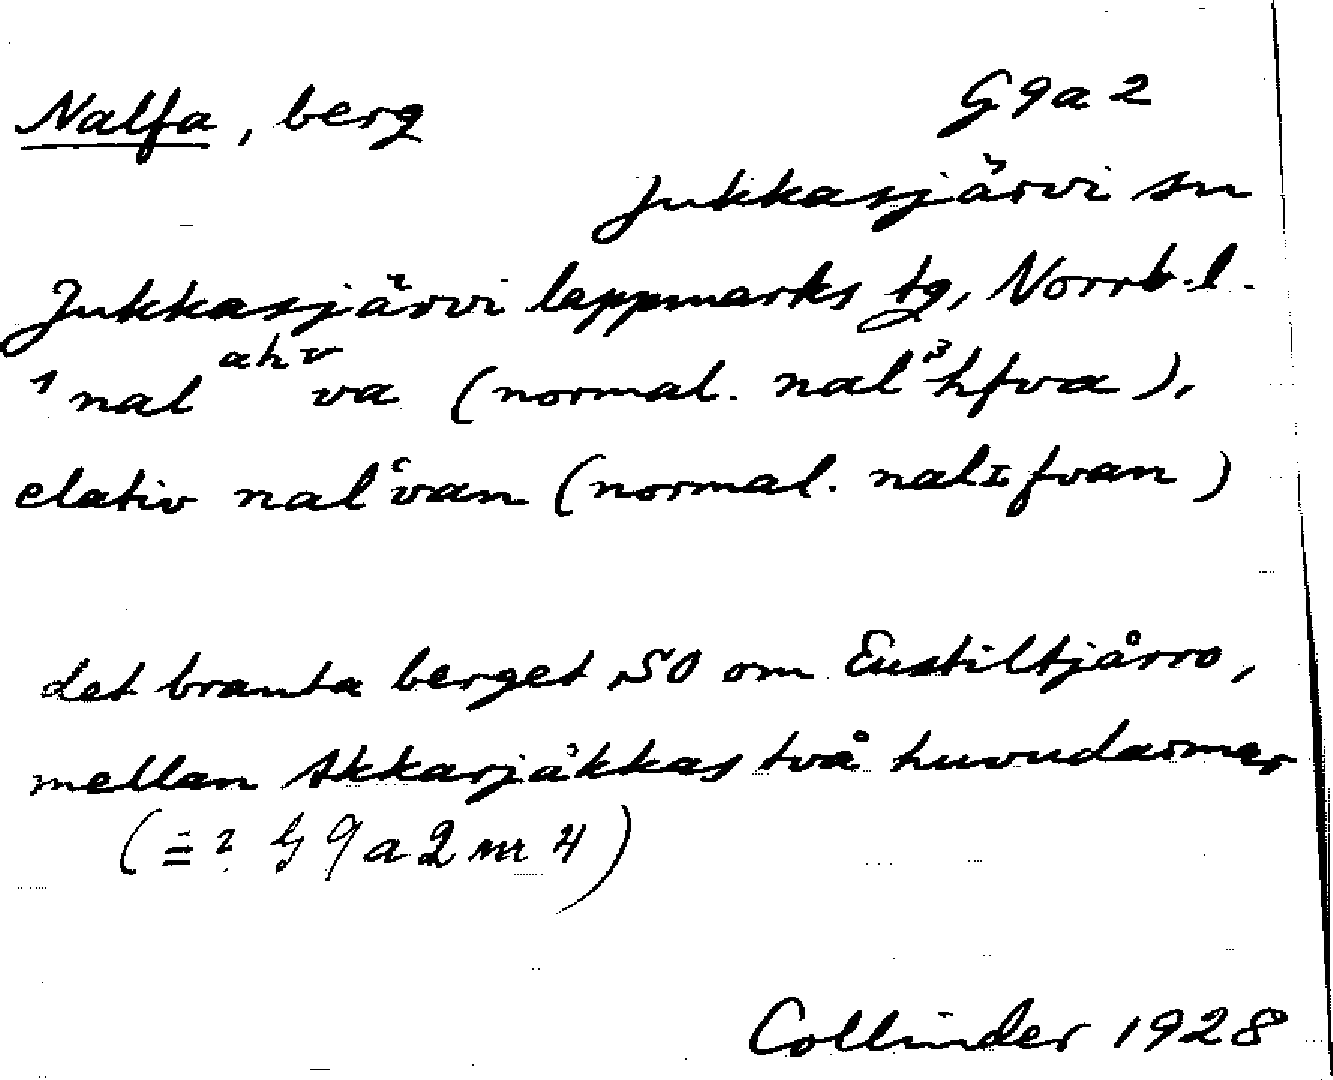 Nalfa, berg G9a2
Jukkasjärvi sn
Jukkasjärvi lappmarks tg, Norrb.l.
1 nal ahv va (normal. nal³hfva),
elativ nal van (normal. nalɪfvan)
det branta berget SO om Eustiltjårro,
mellan Akkarjåkkas två huvudarmar
(=? G9a2 nr 4)
Collinder 1928